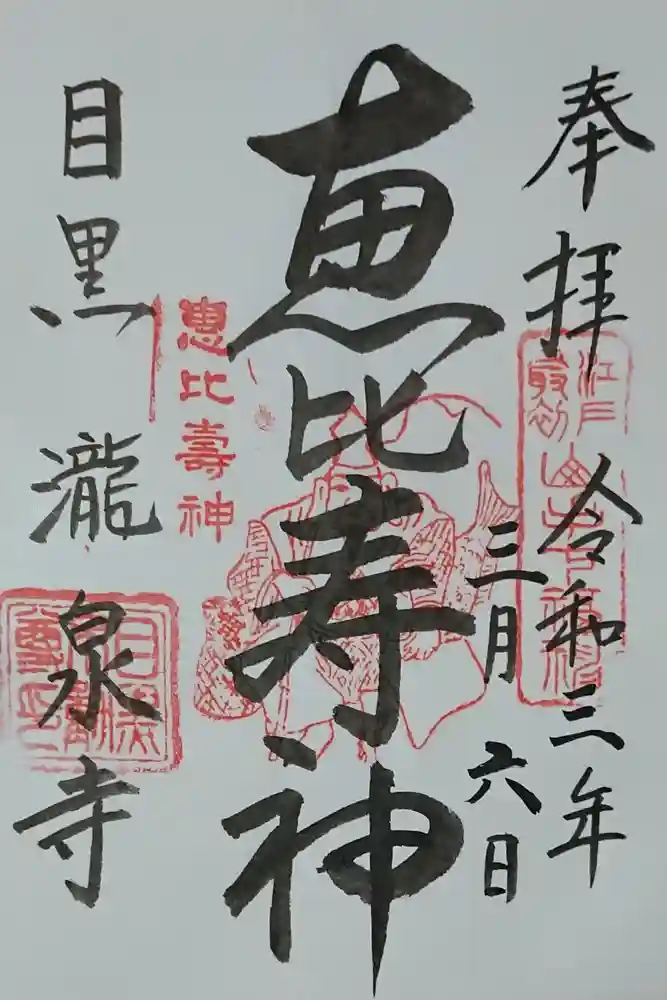 奉拝
令和三年
三月六日
江戸
最初
山七福
恵比寿神
恵比壽神
目黒
瀧泉寺